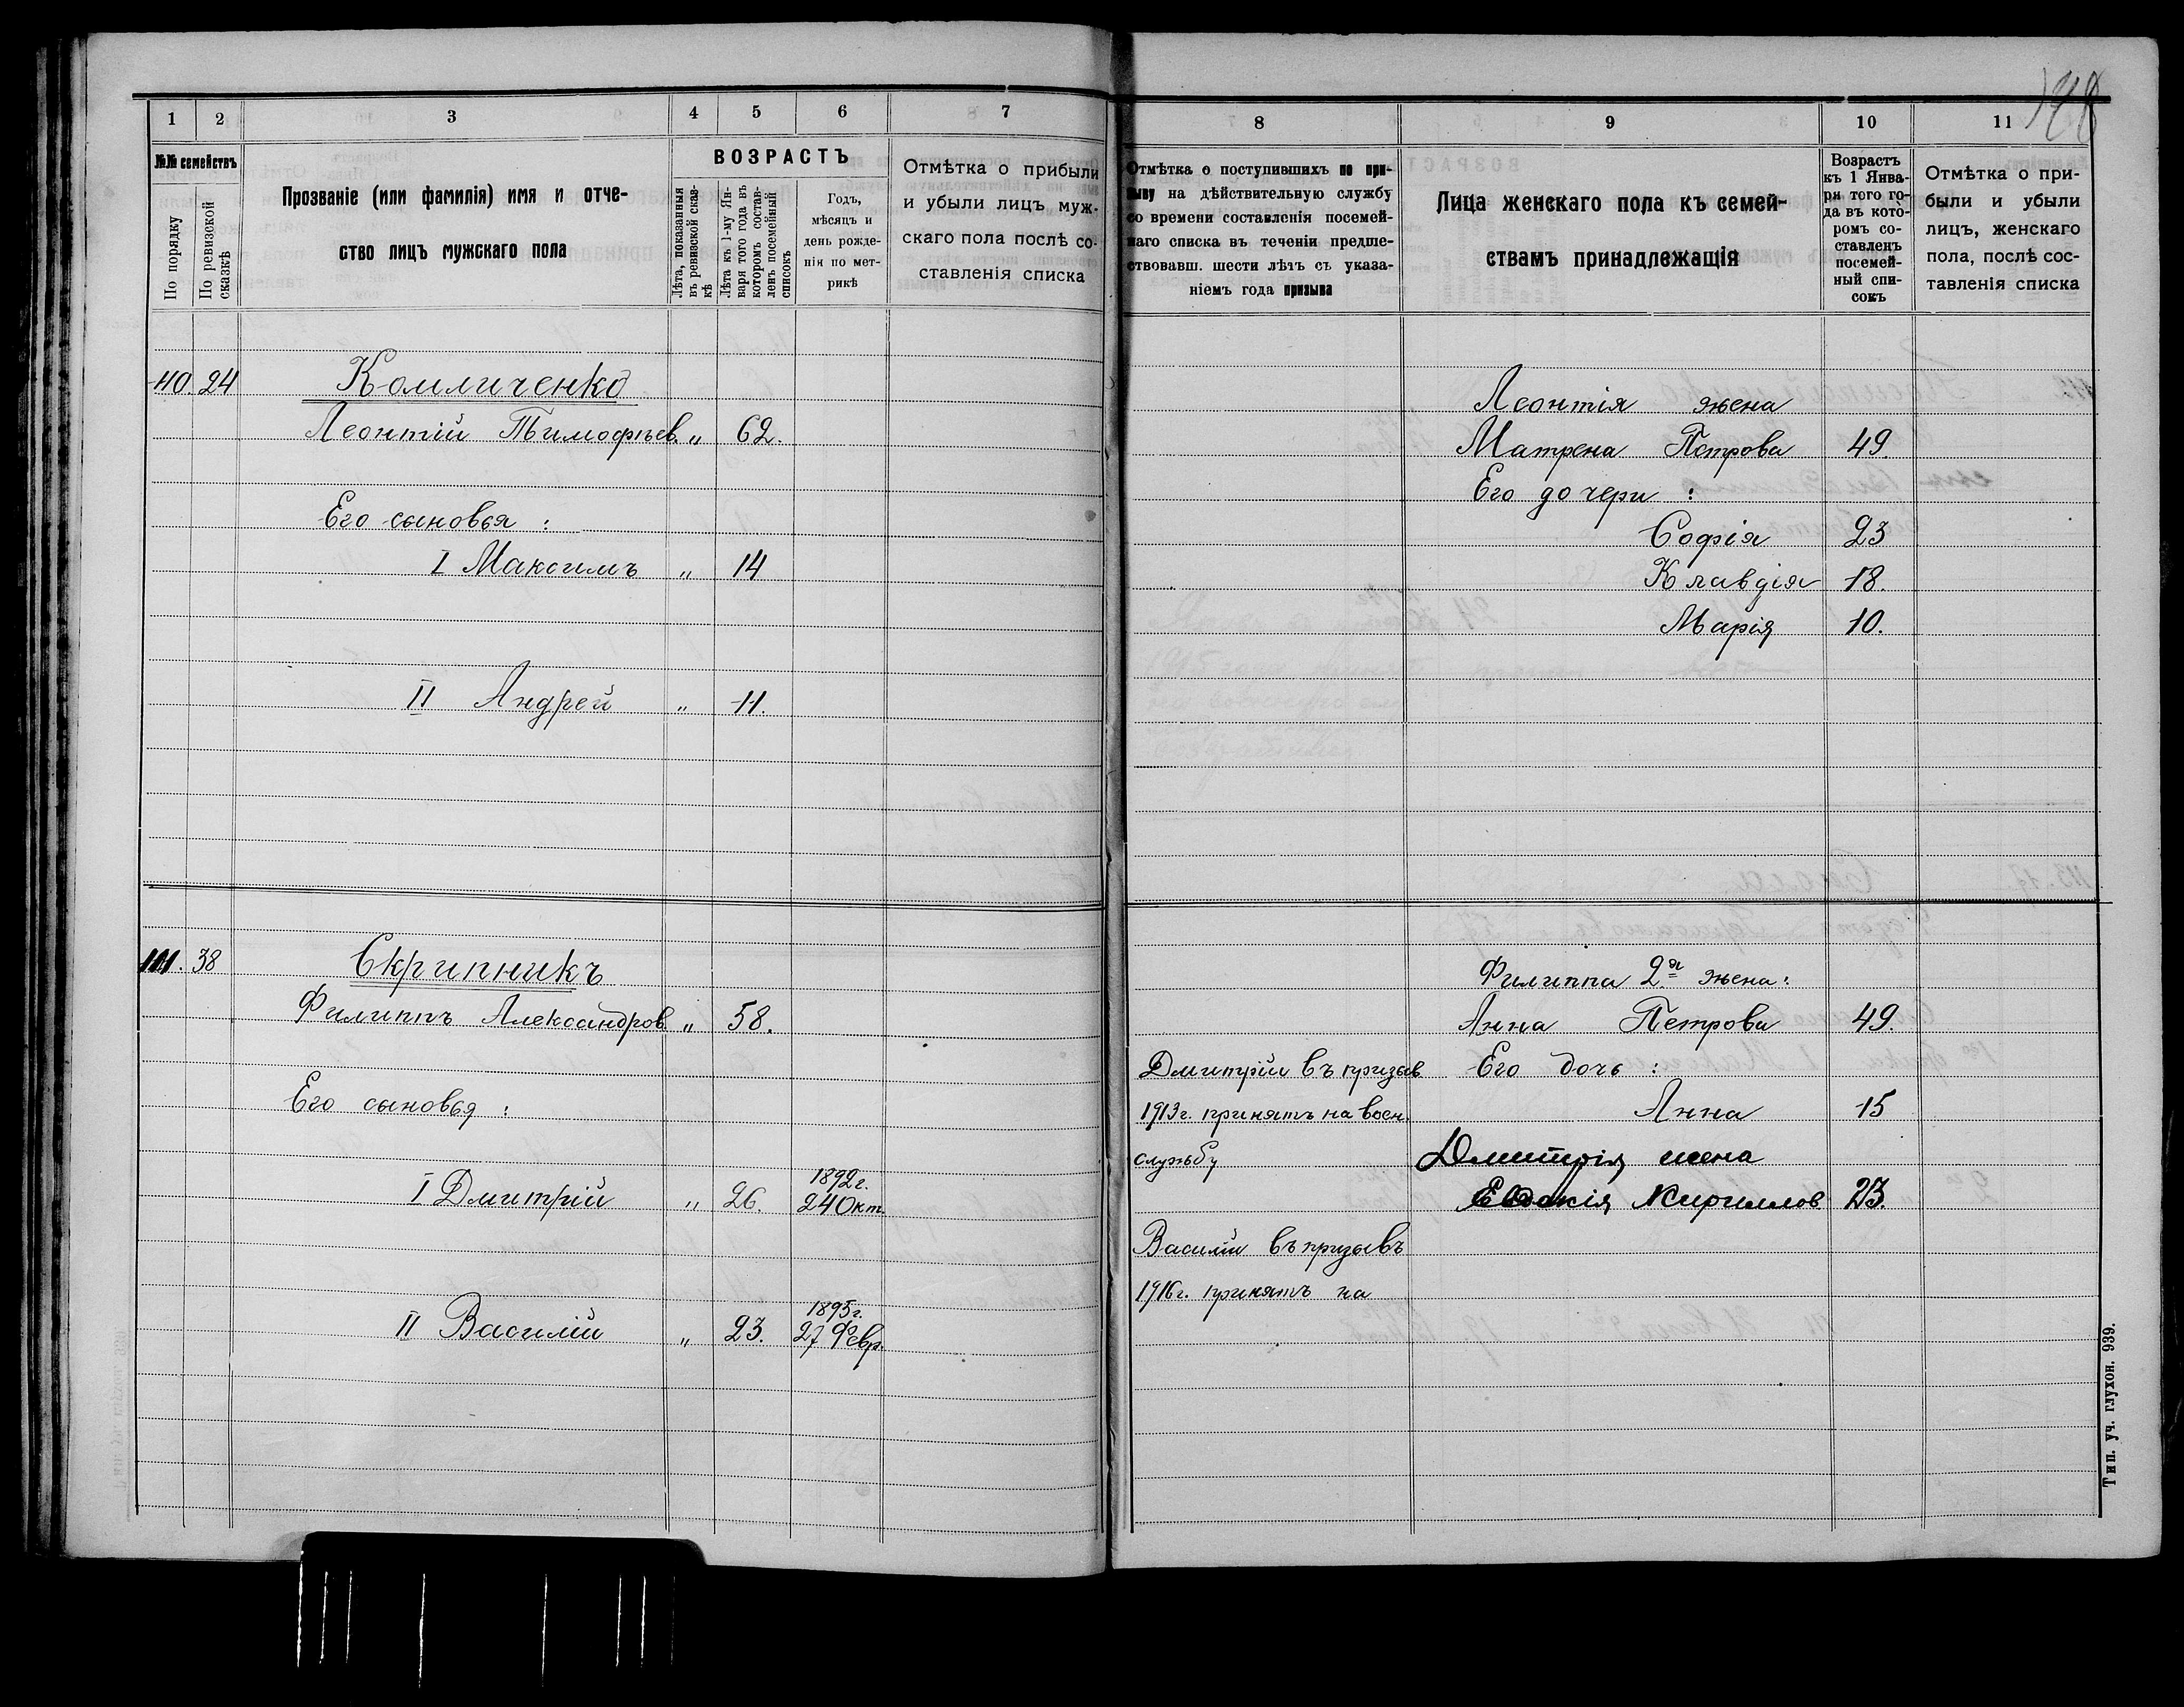 1 2 3 4 5 6 7
№№ семействъ
По порядку
По ревизской сказкѣ
Прозваніе (или фамилія) имя и отче-
ство лицъ мужскаго пола
ВОЗРАСТЪ
Лѣта, показанныя
въ ревизской сказ-
кѣ
Лѣта къ 1-му Ян-
варя того года въ
которомъ состав-
ленъ посемейный
списокъ
Годъ,
мѣсяцъ и
день рожде-
нія по мет-
рикѣ
Отмѣтка о прибыли
и убыли лицъ муж-
скаго пола послѣ со-
ставленія списка
110. 24 Комличенко
Леонтій Тимофѣев. „ 62.
Его сыновья :
I Максимъ „ 14
II Андрей „ 11.
111. 38 Скрипникъ
Филиппъ Александров „ 58.
Его сыновья :
1892г.
I Дмитрій „ 26. 24 Окт.
1895г.
II Василій „ 23. 27 Февр.
8 9 10 11
Отмѣтка о поступившихъ по при-
зыву на дѣйствительную службу
со времени составленія посемей-
наго списка въ теченіи предше-
ствовавш. шести лѣтъ съ указа-
ніемъ года призыва
Лица женскаго пола къ семей-
ствамъ принадлежащія
Возрастъ
къ 1 Янва-
ря того го-
да въ кото-
ромъ со-
ставленъ
посемей-
ный спи-
сокъ
Отмѣтка о при-
были и убыли
лицъ, женскаго
пола, послѣ сос-
тавленія списка
Леонтія жена
Матрена Петрова 49
Его дочери :
Софія 23
Клавдія 18.
Марія 10.
Филиппа 2я жена:
Анна Петрова 49.
Дмитрій въ призыв Его дочь :
1913г. принятъ на воен. Анна 15
службу Дмитрія жена
Евдокія Кириллов 23.
Василій въ призывъ
1916г. принятъ на
Тип. уч. глухон. 939.